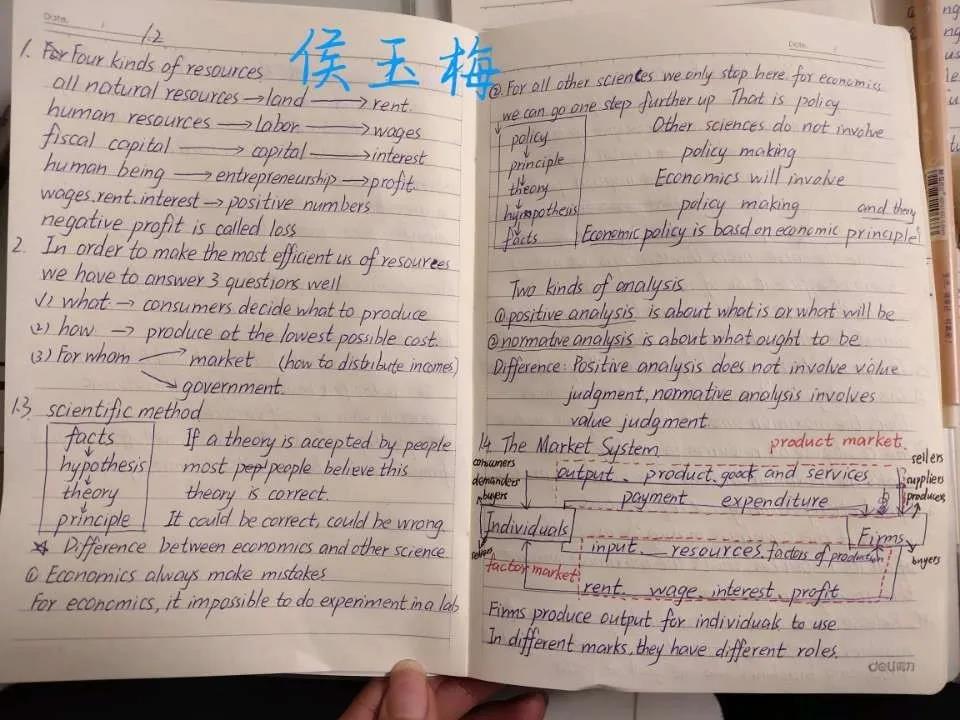 Date.
1.2
侯玉梅
1. For Four kinds of resources
all natural resources → land → rent.
human resources → labor → wages
fiscal capital → capital → interest
human being → entrepreneurship → profit
wages.rent.interest → positive numbers
negative profit is called loss
2. In order to make the most efficient us of resources
we have to answer 3 questions well
(1) what → consumers decide what to produce
(2) how → produce at the lowest possible cost.
(3) For whom → market (how to distribute incomes)
→ government.
1.3. scientific method
facts If a theory is accepted by people
hypothesis most people believe this
theory theory is correct.
principle It could be correct, could be wrong
☆ Difference between economics and other science
① Economics always make mistakes
For economics, it impossible to do experiment in a lab
Date.
② For all other sciences we only stop here for economics
we can go one step further up That is policy
policy Other sciences do not involve
policy making
principle
Economics will involve
theory
policy making and theory
hypothesis
facts Economic policy is basd on economic principle
Two kinds of analysis
① positive analysis is about what is or what will be
② normative analysis is about what ought to be
Difference: Positive analysis does not involve value
judgment, normative analysis involves
value judgment.
1.4. The Market System product market.
consumers
demanders
buyers
output. product. goods and services
sellers
suppliers
producers
payment expenditure
Individuals Firms
sellers input. resources. factors of production buyers
factor market.
rent. wage. interest. profit
Firms produce output for individuals to use
In different marks, they have different roles.
deli得力